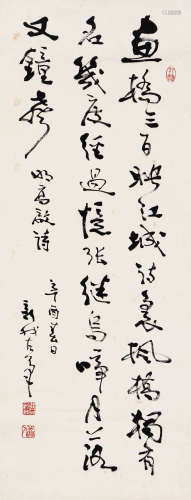 画桥三百映红城诗里枫桥独有
名几度经过忆张继乌啼月落
又钟声
明高启诗
辛酉春日